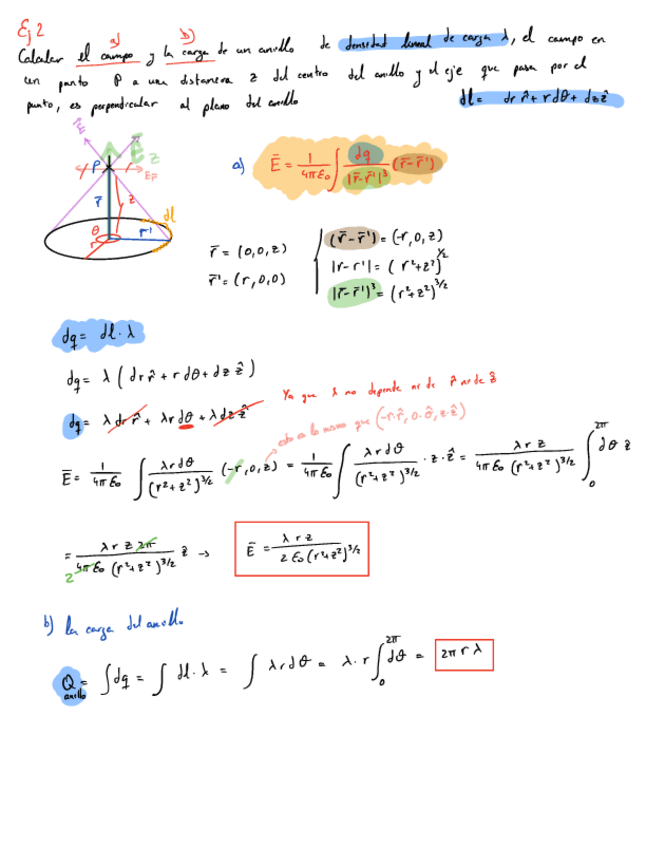 Ej 2
a) b)
Calcular el campo y la carga de un anillo de densidad lineal de carga λ, el campo en
un punto P a una distancia z del centro del anillo y el eje que pasa por el
punto, es perpendicular al plano del anillo
dl = dr r̂ + r dθ + dz ẑ
a) Ē = 1/(4πε₀) ∫ dq/|r̄-r̄'|³ (r̄-r̄')
E z
P
r̄ z dl
θ r'
r
r̄ = (0,0,z)
r̄' = (r,0,0)
(r̄-r̄') = (-r,0,z)
|r-r'| = (r²+z²)^1/2
|r̄-r̄'|³ = (r²+z²)^3/2
dq = dl·λ
dq = λ (dr r̂ + r dθ + dz ẑ)
Ya que λ no depende ni de r̂ ni de ẑ
dq = λ dr r̂ + λr dθ + λ dz ẑ
esto es lo mismo que (-r·r̂, 0·θ̂, z·ẑ)
Ē = 1/(4πε₀) ∫ λr dθ/(r²+z²)^3/2 (-r,0,z) = 1/(4πε₀) ∫ λr dθ/(r²+z²)^3/2 · z·ẑ = λrz/(4πε₀ (r²+z²)^3/2) ∫₀^2π dθ ẑ
= λrz 2π/(4πε₀ (r²+z²)^3/2) ẑ → Ē = λrz/(2ε₀(r²+z²)^3/2)
2
b) la carga del anillo
Q anillo = ∫dq = ∫ dl·λ = ∫ λr dθ = λ·r ∫₀^2π dθ = 2πrλ